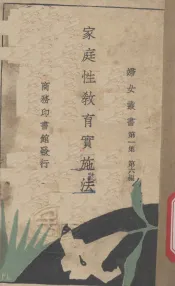 婦女叢書第一集第六編
家庭性教育實施法
商務印書館發行